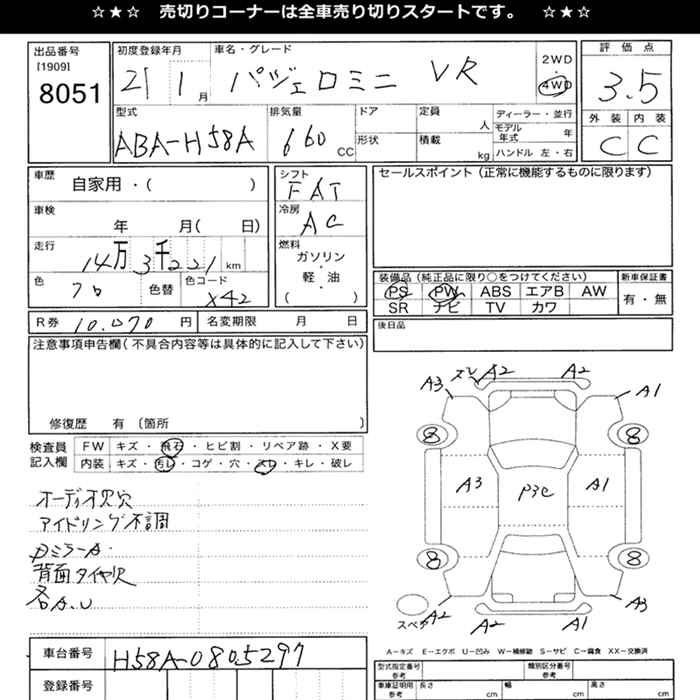 ☆★☆ 売切りコーナーは全車売り切りスタートです。 ☆★☆
出品番号 [1909] 8051
初度登録年月 21 1月
車名・グレード パジェロミニ VR
2WD
4WD
評価点 3.5
型式 ABA-H58A
排気量 660 CC
ドア
形状
定員 人
積載 kg
ディーラー・並行
モデル年式 年
ハンドル 左・右
外装 内装
C C
車歴 自家用・( )
シフト FAT
セールスポイント(正常に機能するものに限ります)
車検 年 月( 日)
冷房 AC
走行 14万3千221 km
燃料 ガソリン・軽・油 ( )
色 色替 色コード X42
装備品(純正品に限り○をつけてください)
新車保証書
PS PW ABS エアB AW
SR ナビ TV カワ
有・無
R券 10.070 円 名変期限 月 日
後日品
注意事項申告欄(不具合内容等は具体的に記入して下さい)
修復歴 有 〔箇所 〕
検査員記入欄
FW キズ・飛石・ヒビ割・リペア跡・X要
内装 キズ・汚レ・コゲ・穴・スレ・キレ・破レ
オーディオ欠穴
アイドリング不調
ミラーA
背面タイヤ欠
各A.U
A3 スレ A2 A2 A1
8 8
A3 P3C A1
8 8
スペア A2 A2 A1 A3
A-キズ E-エクボ U-凹み W-補修跡 S-サビ C-腐食 XX-交換済
車台番号 H58A-0805297
登録番号
型式指定番号 参考
類別区分番号 参考
車庫証明用 参考 長さ cm 幅 cm 高さ cm